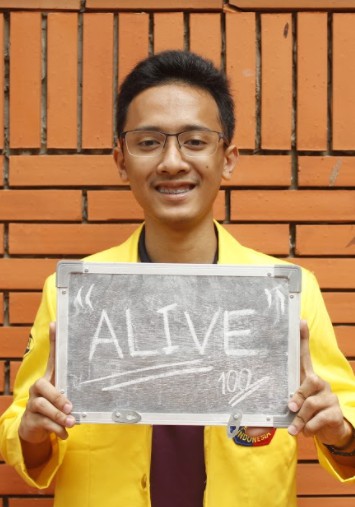 "ALIVE"
100
INDONESIA